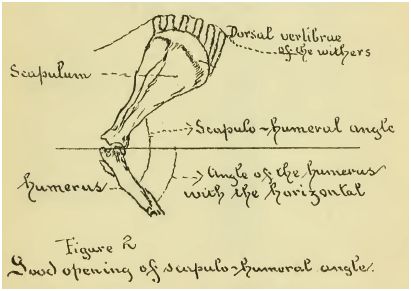 Dorsal vertibrae
of the withers
Scapulum
Scapulo-humeral angle
Angle of the humerus
with the horizontal
humerus
Figure 2
Good opening of scapulo-humeral angle.